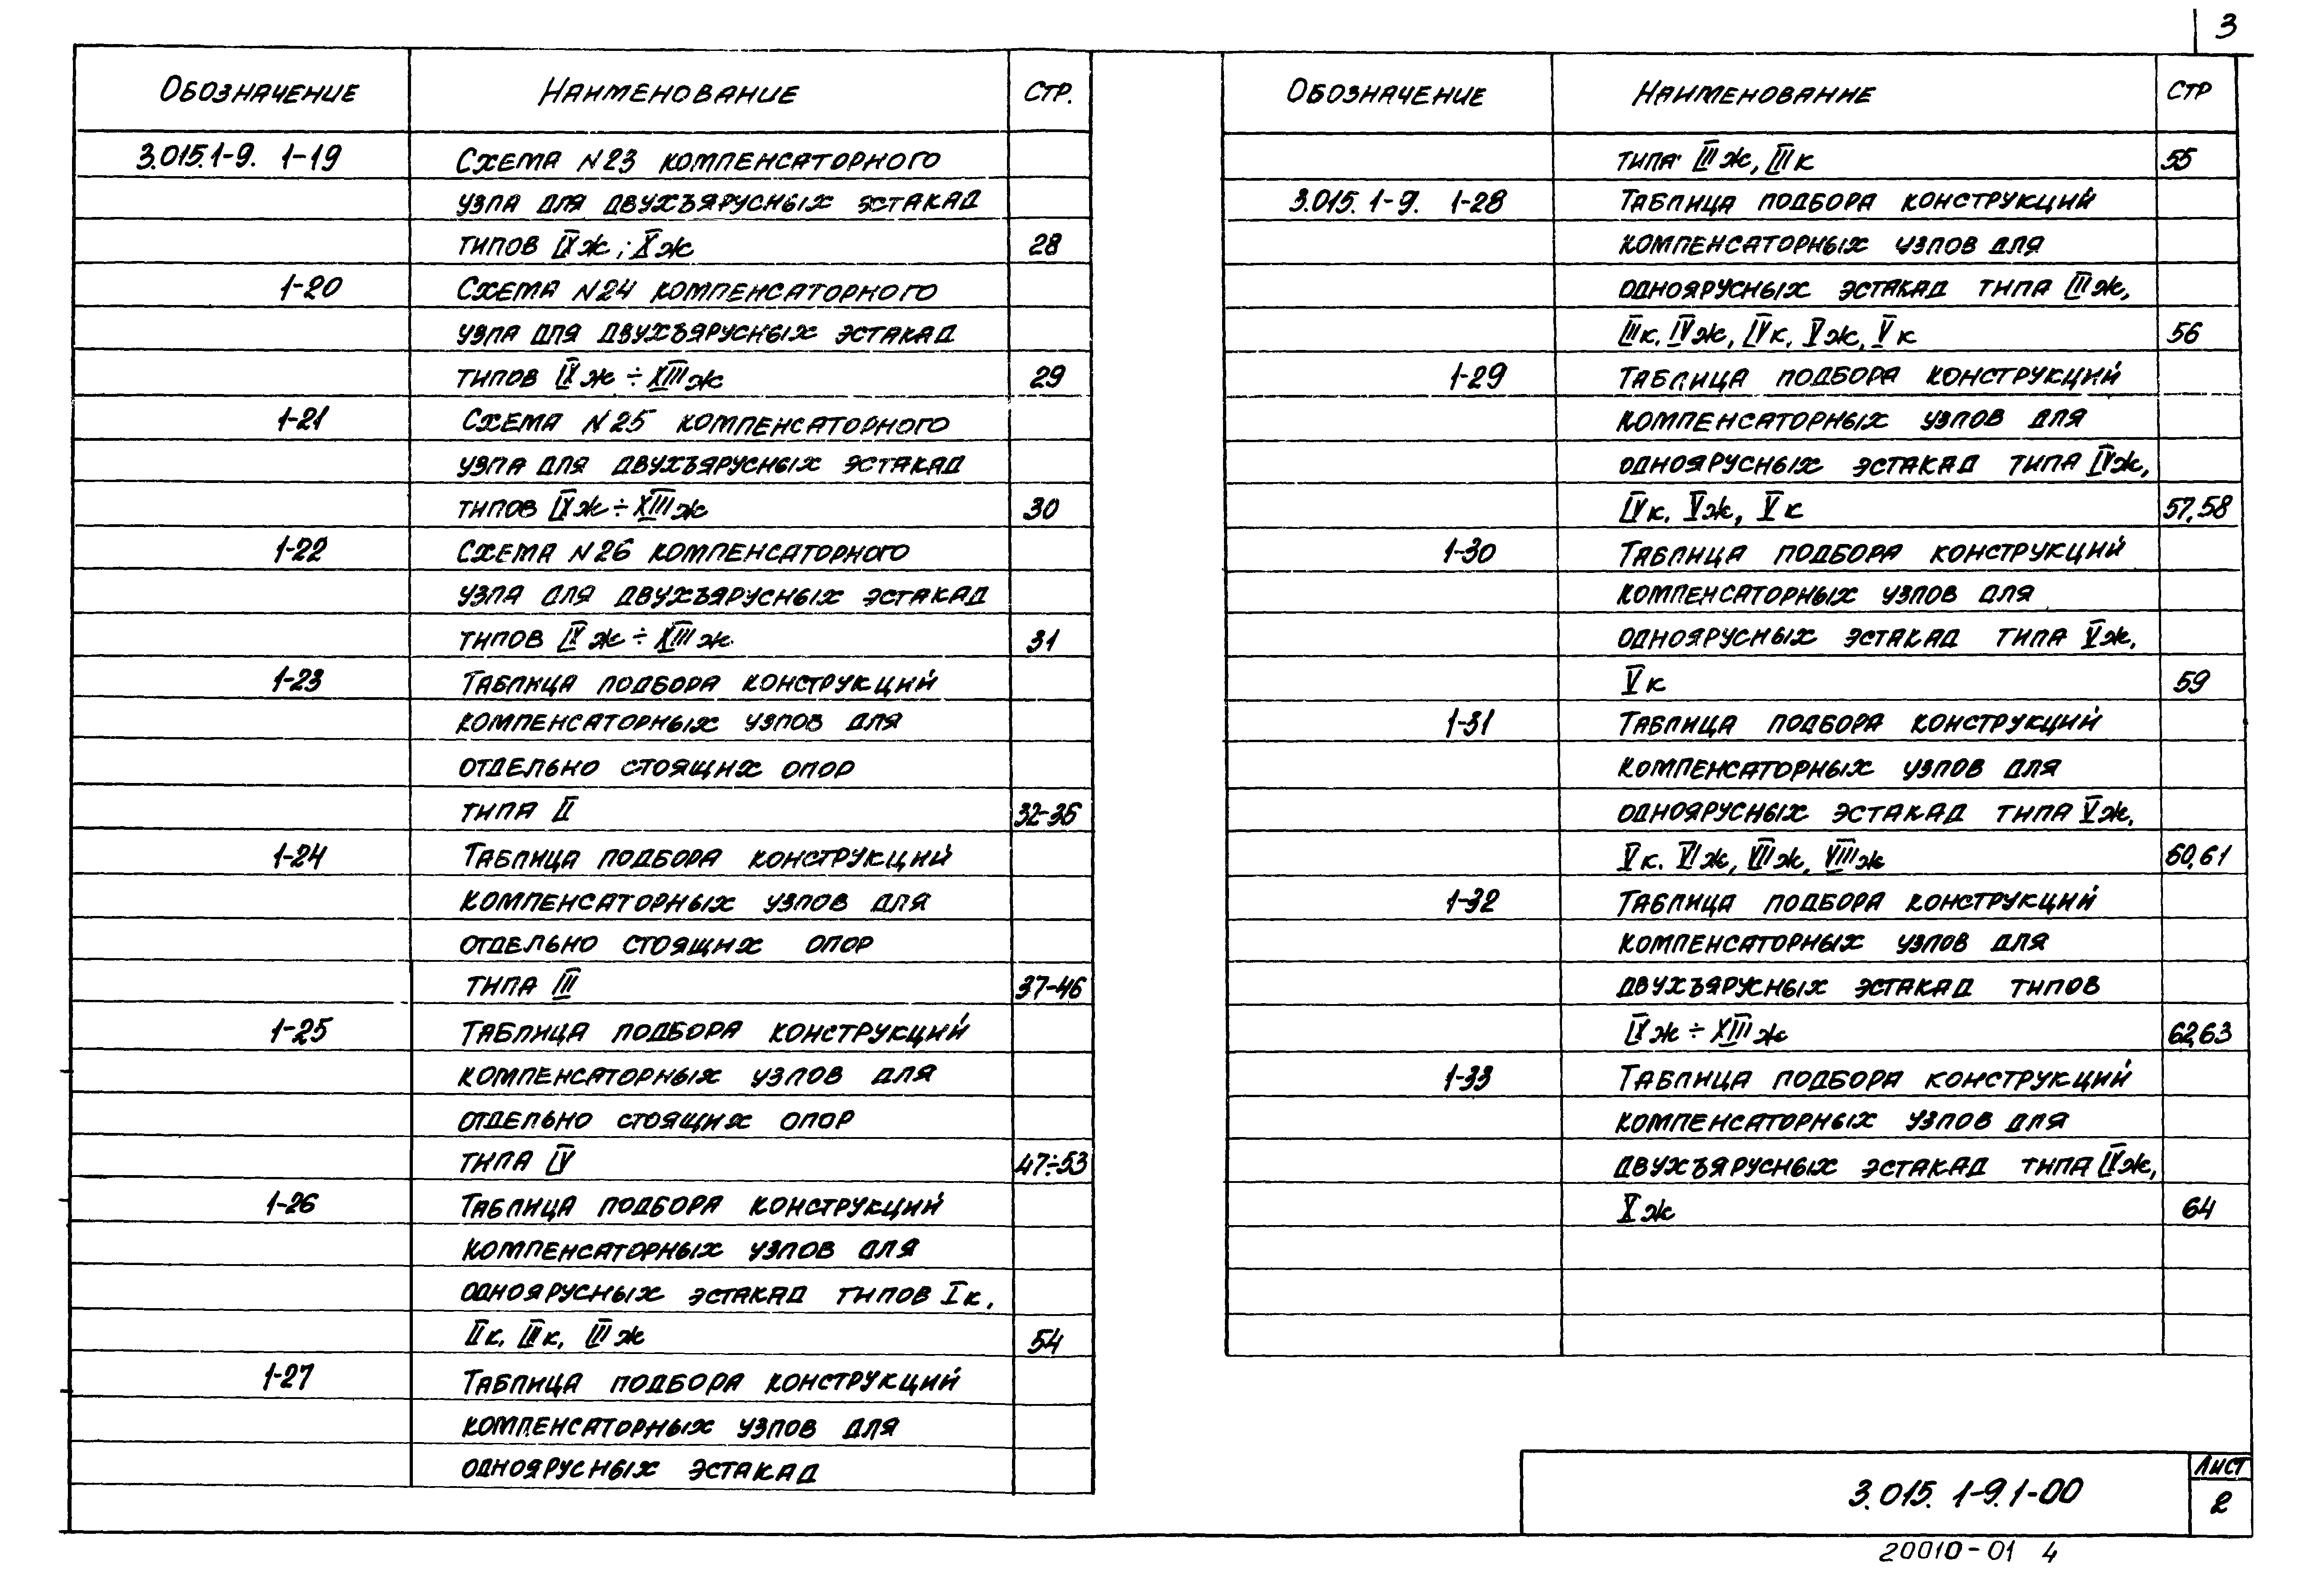 3
Обозначение Наименование Стр.
3.015.1-9. 1-19 Схема N23 компенсаторного
узла для двухъярусных эстакад
типов IXж; Xж 28
1-20 Схема N24 компенсаторного
узла для двухъярусных эстакад
типов IXж ÷ XIIIж 29
1-21 Схема N25 компенсаторного
узла для двухъярусных эстакад
типов IXж ÷ XIIIж 30
1-22 Схема N26 компенсаторного
узла для двухъярусных эстакад
типов IXж ÷ XIIIж 31
1-23 Таблица подбора конструкций
компенсаторных узлов для
отдельно стоящих опор
типа II 32-36
1-24 Таблица подбора конструкций
компенсаторных узлов для
отдельно стоящих опор
типа III 37-46
1-25 Таблица подбора конструкций
компенсаторных узлов для
отдельно стоящих опор
типа IV 47÷53
1-26 Таблица подбора конструкций
компенсаторных узлов для
одноярусных эстакад типов Iк,
IIк, IIIк, IIIж 54
1-27 Таблица подбора конструкций
компенсаторных узлов для
одноярусных эстакад
Обозначение Наименование Стр
типа IIIж, IIIк 55
3.015.1-9. 1-28 Таблица подбора конструкций
компенсаторных узлов для
одноярусных эстакад типа IIIж,
IIIк, IVж, IVк, Vж, Vк 56
1-29 Таблица подбора конструкций
компенсаторных узлов для
одноярусных эстакад типа IVж,
IVк, Vж, Vк 57,58
1-30 Таблица подбора конструкций
компенсаторных узлов для
одноярусных эстакад типа Vж,
Vк 59
1-31 Таблица подбора конструкций
компенсаторных узлов для
одноярусных эстакад типа Vж,
Vк, VIж, VIIж, VIIIж 60,61
1-32 Таблица подбора конструкций
компенсаторных узлов для
двухъярусных эстакад типов
IXж ÷ XIIIж 62,63
1-33 Таблица подбора конструкций
компенсаторных узлов для
двухъярусных эстакад типа IXж,
Xж 64
3.015. 1-9.1-00
Лист
2
20010-01 4